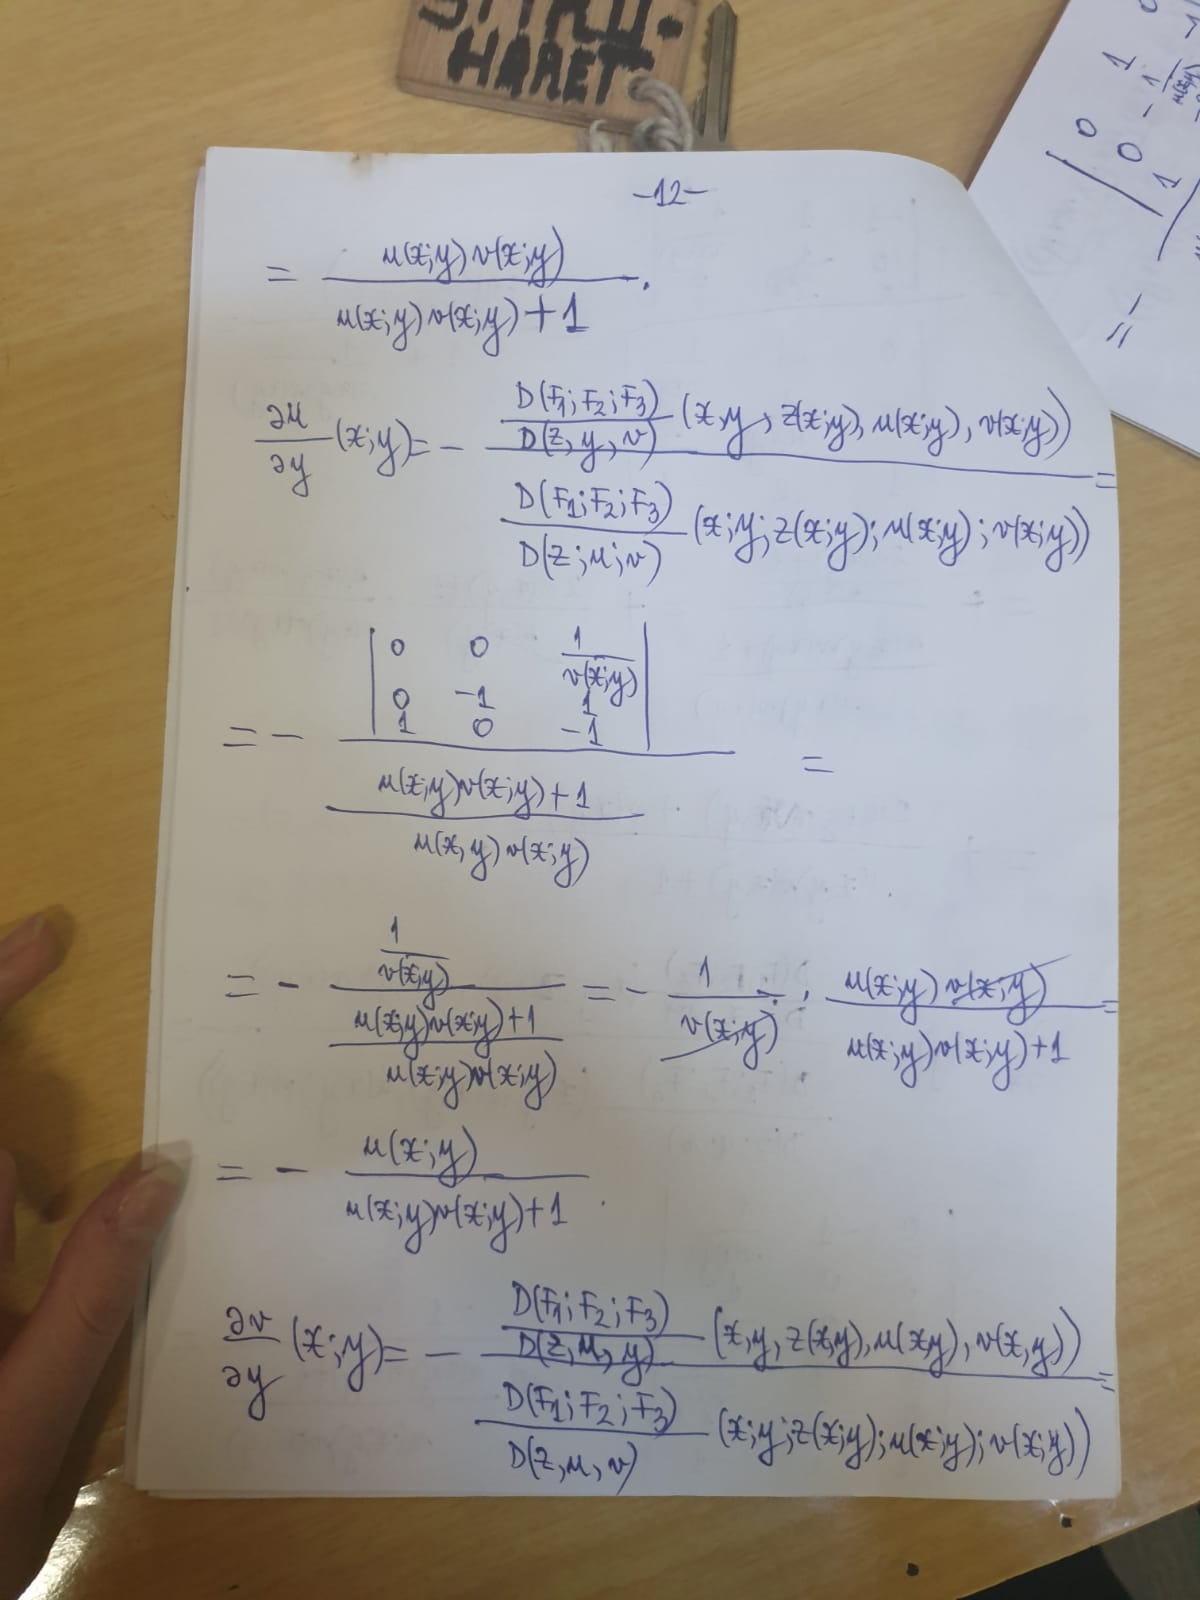 HARET
-12-
= u(x;y) v(x;y) / u(x;y) v(x;y) + 1 .
∂u/∂y (x;y) = - D(F1; F2; F3)/D(z, y, v) (x, y, z(x;y), u(x;y), v(x;y)) / D(F1; F2; F3)/D(z; u; v) (x; y; z(x;y); u(x;y); v(x;y)) =
= - | 0 0 1/v(x;y)
0 -1 1
1 0 -1 | / u(x;y)v(x;y) + 1 / u(x,y) v(x;y) =
= - 1/v(x;y) / u(x;y)v(x;y) + 1 / u(x;y)v(x;y) = - 1/v(x;y) · u(x;y) v(x;y) / u(x;y)v(x;y) + 1 =
= - u(x;y) / u(x;y)v(x;y) + 1 .
∂v/∂y (x;y) = - D(F1; F2; F3)/D(z, u, y) (x, y, z(x,y), u(x,y), v(x,y)) / D(F1; F2; F3)/D(z, u, v) (x; y; z(x;y); u(x;y); v(x;y)) =